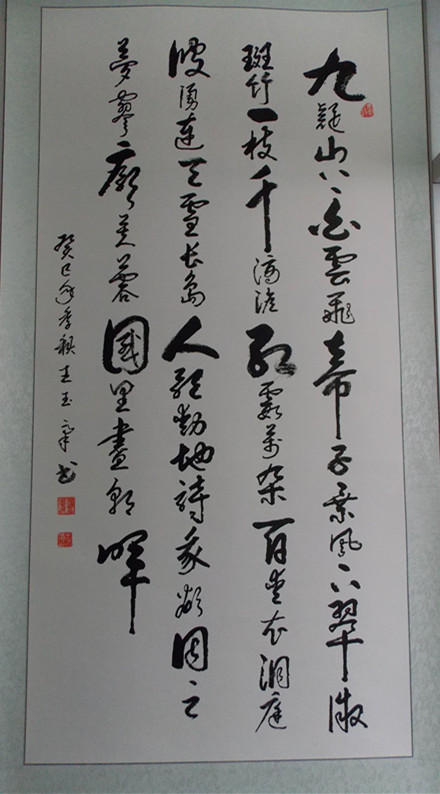 九嶷山上白雲飛帝子乘風下翠微
斑竹一枝千滴淚紅霞萬朵百重衣洞庭
波湧連天雪长島人歌動地詩我欲因之
夢寥廓芙蓉國里盡朝暉
癸巳年季秋王玉书